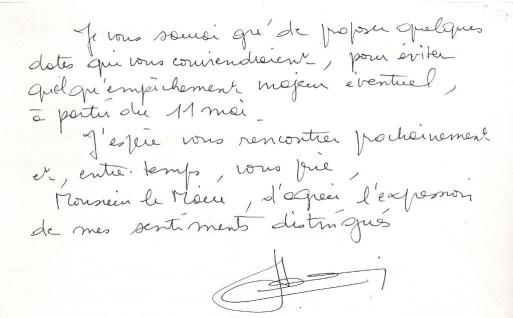 Je vous saurai gré de proposer quelques
dates qui vous conviendraient, pour éviter
quelqu'empêchement majeur éventuel,
à partir du 11 mai.
J'espère vous rencontrer prochainement
et, entre-temps, vous prie,
Monsieur le Maire, d'agréer l'expression
de mes sentiments distingués